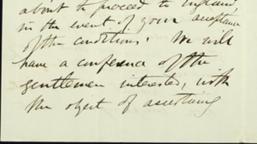 about to proceed to England,
in the event of your acceptance
of the conditions. We will
have a conference of the
gentlemen interested, with
the object of ascertaining